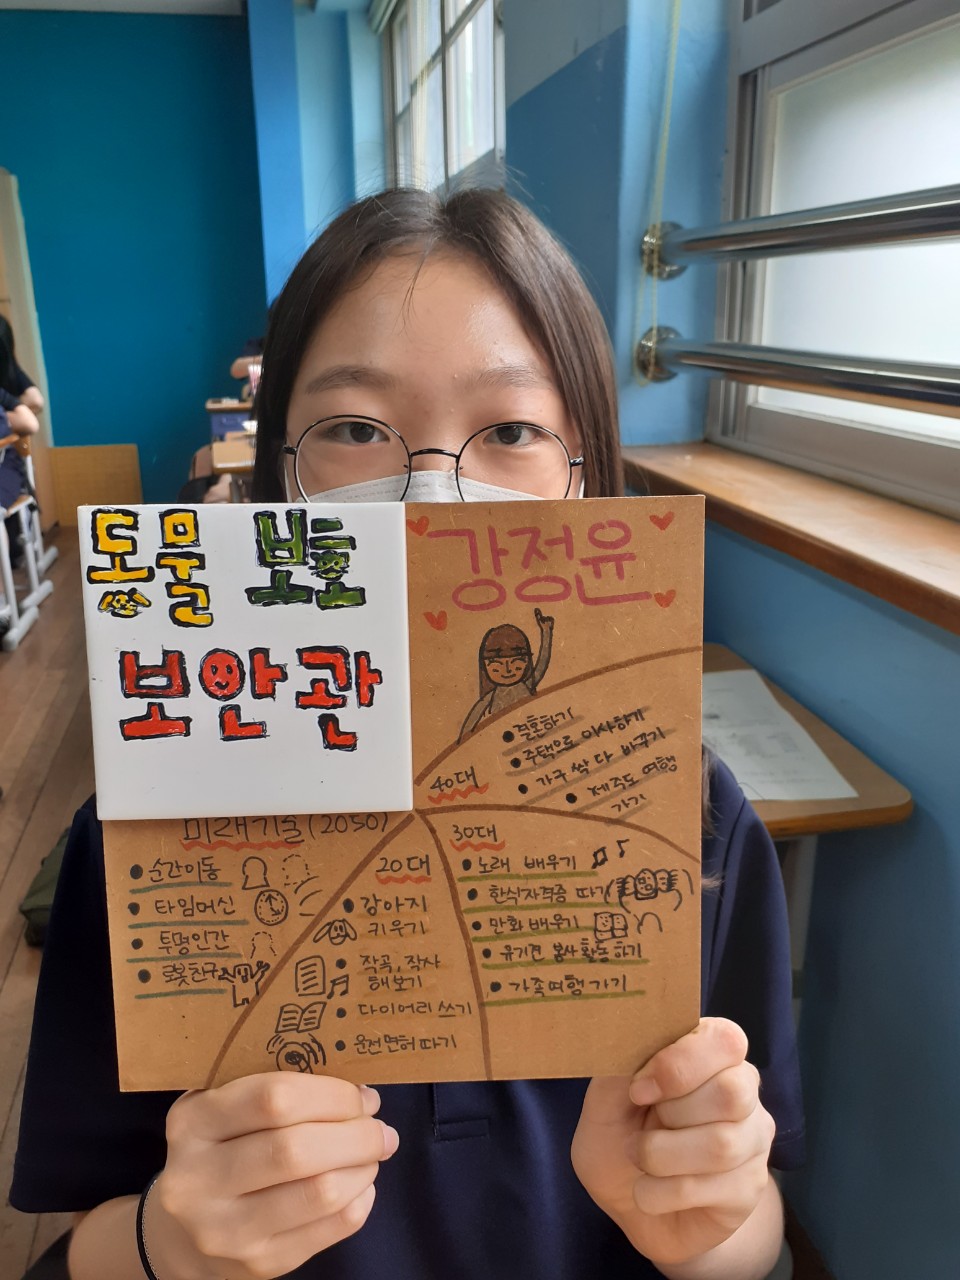 동물 보호
보안관
강정윤
40대
결혼하기
주택으로 이사하기
가구 싹 다 바꾸기
제주도 여행
가기
미래기술(2050)
순간이동
타임머신
투명인간
로봇친구
20대
강아지
키우기
작곡, 작사
해보기
다이어리 쓰기
운전면허 따기
30대
노래 배우기
한식자격증 따기
만화 배우기
유기견 봉사활동하기
가족여행 가기